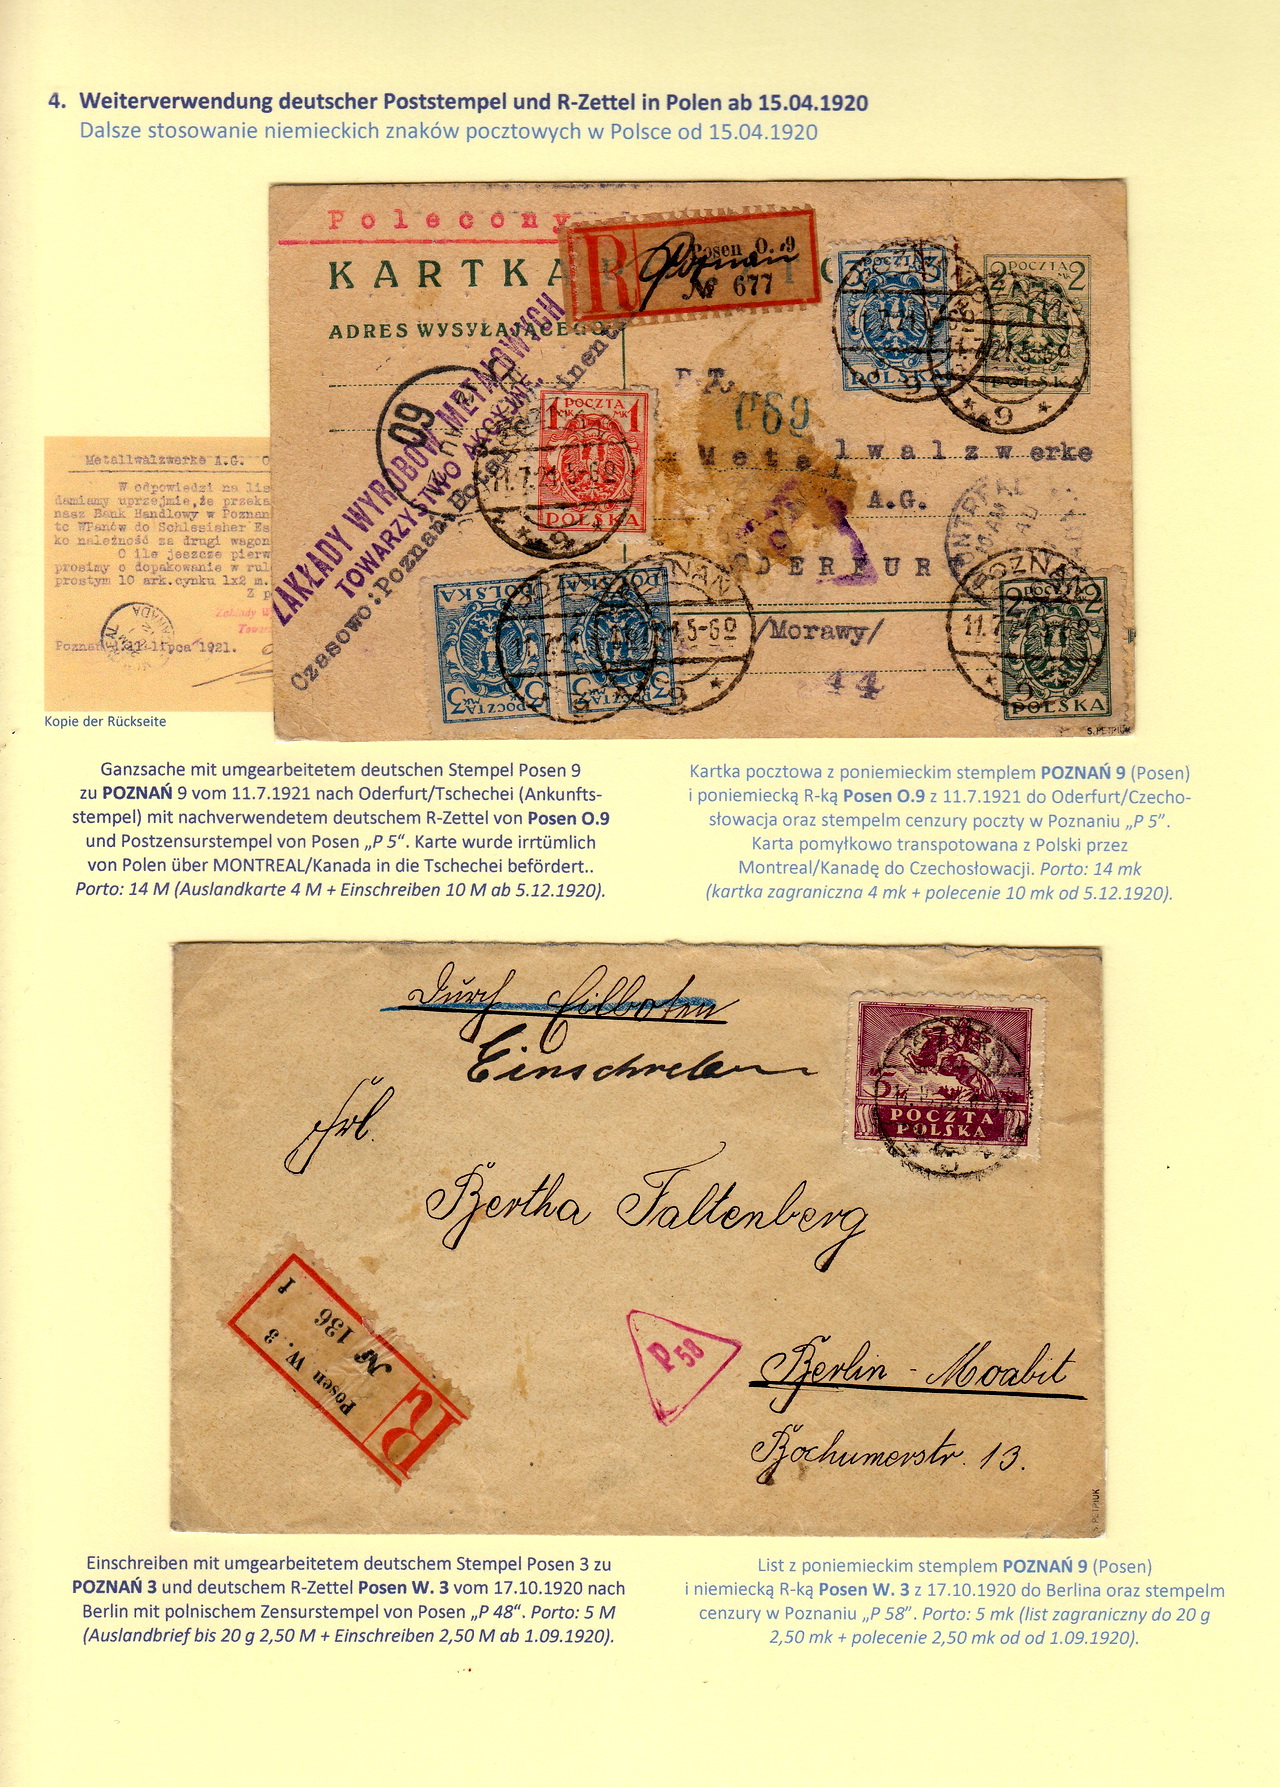 4. Weiterverwendung deutscher Poststempel und R-Zettel in Polen ab 15.04.1920
Dalsze stosowanie niemieckich znaków pocztowych w Polsce od 15.04.1920
Polecony
KARTKA
Posen O. 9
Poznań
R
№ 677
ADRES WYSYŁAJĄCEGO
3 POCZTA 3
POLSKA
2 POCZTA 2
POLSKA
POZNAŃ
11.7.21.5-6
9
ZAKŁADY WYROBÓW METALOWYCH
TOWARZYSTWO AKCYJNE.
Czasowo: Poznań
09
1 POCZTA 1
MK MK
POLSKA
11.7.21.5-6
9
P.T.
069
Metallwalzwerke
A.G.
ODERFUR
/Morawy/
44
POCZTA
3 MK 3
POLSKA
POCZTA
3 MK 3
POLSKA
POZNAŃ
11.7.21.5-6
9
POZNAŃ
11.7.21
9
2 2
POLSKA
S. PETRIUK
Metallwalzwerke A.G. O
W odpowiedzi na lis
damiamy uprzejmie, że przeka
nasz Bank Handlowy w Poznan
to WPanów do Schlesisher Es
ko należność za drugi wagon
O ile jeszcze pierw
prosimy o dopakowanie w rul
prostym 10 ark.cynku 1x2 m.
Z p
Zakłady W
Towar
Poznań 11 lipca 1921.
Kopie der Rückseite
Ganzsache mit umgearbeitetem deutschen Stempel Posen 9
zu POZNAŃ 9 vom 11.7.1921 nach Oderfurt/Tschechei (Ankunfts-
stempel) mit nachverwendetem deutschem R-Zettel von Posen O.9
und Postzensurstempel von Posen „P 5“. Karte wurde irrtümlich
von Polen über MONTREAL/Kanada in die Tschechei befördert..
Porto: 14 M (Auslandkarte 4 M + Einschreiben 10 M ab 5.12.1920).
Kartka pocztowa z poniemieckim stemplem POZNAŃ 9 (Posen)
i poniemiecką R-ką Posen O.9 z 11.7.1921 do Oderfurt/Czecho-
słowacja oraz stempelm cenzury poczty w Poznaniu „P 5”.
Karta pomyłkowo transpotowana z Polski przez
Montreal/Kanadę do Czechosłowacji. Porto: 14 mk
(kartka zagraniczna 4 mk + polecenie 10 mk od 5.12.1920).
Durch Eilboten
Einschreiben
5
POCZTA
POLSKA
Frl.
Bertha Faltenberg
R
Posen W. 3
№ 136
f
P 58
Berlin - Moabit
Bochumerstr. 13.
S. PETRIUK
Einschreiben mit umgearbeitetem deutschem Stempel Posen 3 zu
POZNAŃ 3 und deutschem R-Zettel Posen W. 3 vom 17.10.1920 nach
Berlin mit polnischem Zensurstempel von Posen „P 48“. Porto: 5 M
(Auslandbrief bis 20 g 2,50 M + Einschreiben 2,50 M ab 1.09.1920).
List z poniemieckim stemplem POZNAŃ 9 (Posen)
i niemiecką R-ką Posen W. 3 z 17.10.1920 do Berlina oraz stempelm
cenzury w Poznaniu „P 58”. Porto: 5 mk (list zagraniczny do 20 g
2,50 mk + polecenie 2,50 mk od od 1.09.1920).